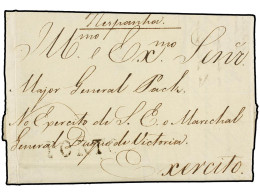 Hespanha
M.mo e Ex.mo Senr.
Major General Pack.
No Exercito de S. E. o Marichal
General Duque de Victoria.
Exercito.